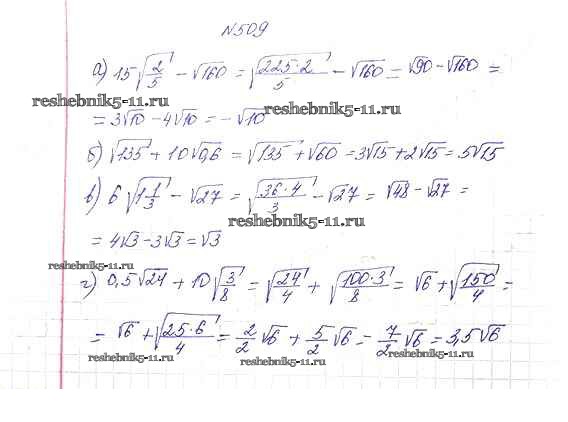 N509
а) 15√(2/5) − √160 = √(225·2/5) − √160 = √90 − √160 =
reshebnik5-11.ru reshebnik5-11.ru
= 3√10 − 4√10 = −√10
б) √135 + 10√0,6 = √135 + √60 = 3√15 + 2√15 = 5√15
в) 6√(1 1/3) − √27 = √(36·4/3) − √27 = √48 − √27 =
reshebnik5-11.ru
= 4√3 − 3√3 = √3
reshebnik5-11.ru
г) 0,5√24 + 10√(3/8) = √(24/4) + √(100·3/8) = √6 + √(150/4) =
= √6 + √(25·6/4) = 2/2 √6 + 5/2 √6 = 7/2 √6 = 3,5√6
reshebnik5-11.ru reshebnik5-11.ru